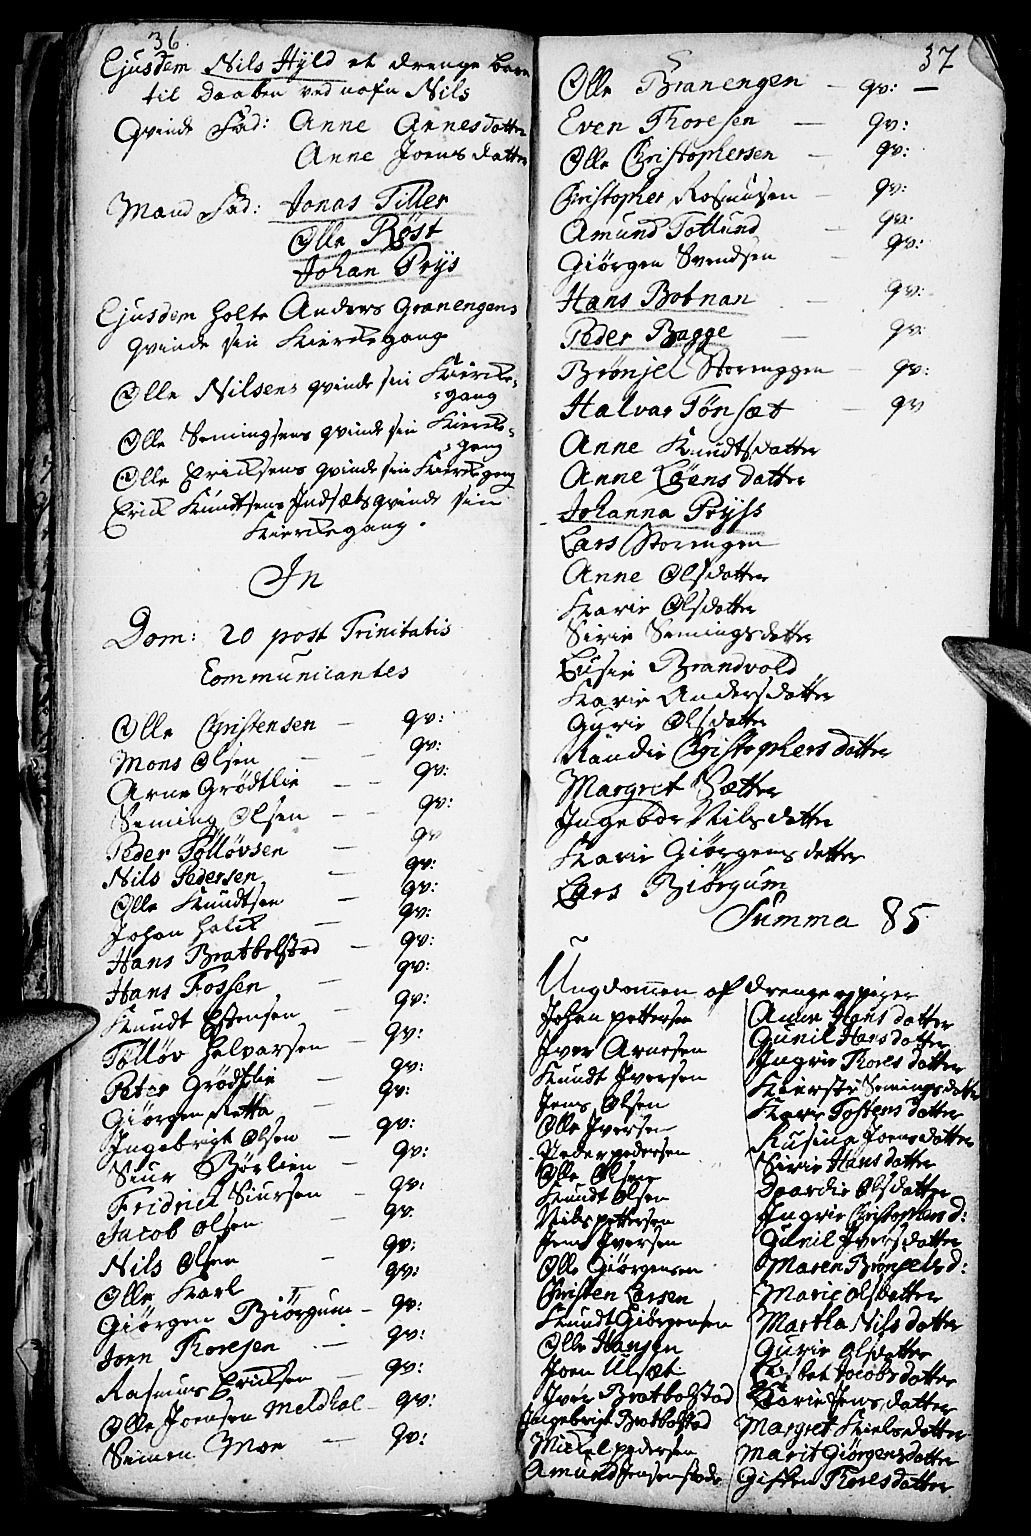 36.
Ejusdem Nils Hÿld et drenge barn
til Daaben ved nafn Nils
Qvinde Fad: Anne Arnesdatter
Anne Joensdatter
Mand Fad: Jonas Tiller
Olle Røst
Johan Prÿs
Ejusdem holte Anders Granengens
qvinde sin Kierckegang
Olle Nilsens qvinde sin Kiercke-
gang
Olle Semingsens qvinde sin Kiercke-
gang
Olle Ericksens qvinde sin Kierckegang
Erick Knudtsens Indsæts qvinde sin
Kierckegang.
In
Dom: 20 post Trinitatis
Communicantes
Olle Christensen — qv:
Mons Olsen — qv:
Arne Grödtlie — qv:
Seming Olsen — qv:
Peder Tølløvsen — qv
Nils Pedersen — qv:
Olle Knudtsen — qv:
Johan Holck — qv:
Hans Bratbolstad — qv:
Hans Fossen — qv:
Knudt Estensen — qv:
Tølløv Halvarsen — qv:
Peter Grödtlie — qv:
Giörgen Retta — qv:
Ingebrigt Olsen — qv:
Siur Börlien — qv:
Fridrick Siursen — qv:
Jacob Olsen — qv
Nils Olsen — qv:
Olle Karl — qv:
Giörgen Biörgum — qv:
Joen Thoresen — qv:
Rasmus Ericksen — qv:
Olle Joensen Meldhal — qv:
Simen Moe — qv:
37
Olle Granengen — qv: —
Even Thoresen — qv:
Olle Christophersen — qv:
Christopher Rasmusen — qv:
Amund Tollund — qv:
Giörgen Svendsen qv:
Hans Botnan — qv:
Peder Bagge — qv:
Brönjel Storenggen — qv:
Halvar Tönsæt — qv
Anne Knudtsdatter
Anne Löensdatter
Johanna Prÿss
Lars Storengen
Anne Olsdatter
Karie Olsdatter
Sirie Semingsdatter
Lusie Brandvold
Karie Andersdatter
Gurie Olsdatter
Randie Christophersdatter
Margret Sætter
Ingebor Nilsdatter
Karie Giörgensdatter
Lars Biörgum
Summa 85
Ungdommen af drenge og piger
Johan pettersen
Iver Arnesen
Knudt Iversen
Jens Olsen
Olle Iversen
Peder pedersen
Olle Olsen
Knudt Olsen
Nils pettersen
Jens Iversen
Olle Giörgensen
Christen Larsen
Knudt Giörgensen
Olle Hansen
Joen Ulsæt
Iver Bratbolstad
Ingebrigt Bratbolstad
Mickel pedersen
Amund Jensen
Anne Hansdatter
Gunil Hansdatter
Ingrie Thoresdatter
Kiersti Semingsdatter
Kari Tostensdatter
Lusina Joensdatter
Sirie Hansdatter
Dordie Olsdatter
Ingrie Christophers d:
Gunil Iversdatter
Maren Brönjels d:
Marie Olsdatter
Martha Nilsdatter
Gurie Olsdatter
Lisbet Jacobsdatter
Karie Jensdatter
Margret Nielsdatter
Marit Giörgensdatter
Gisken Thoresdatter